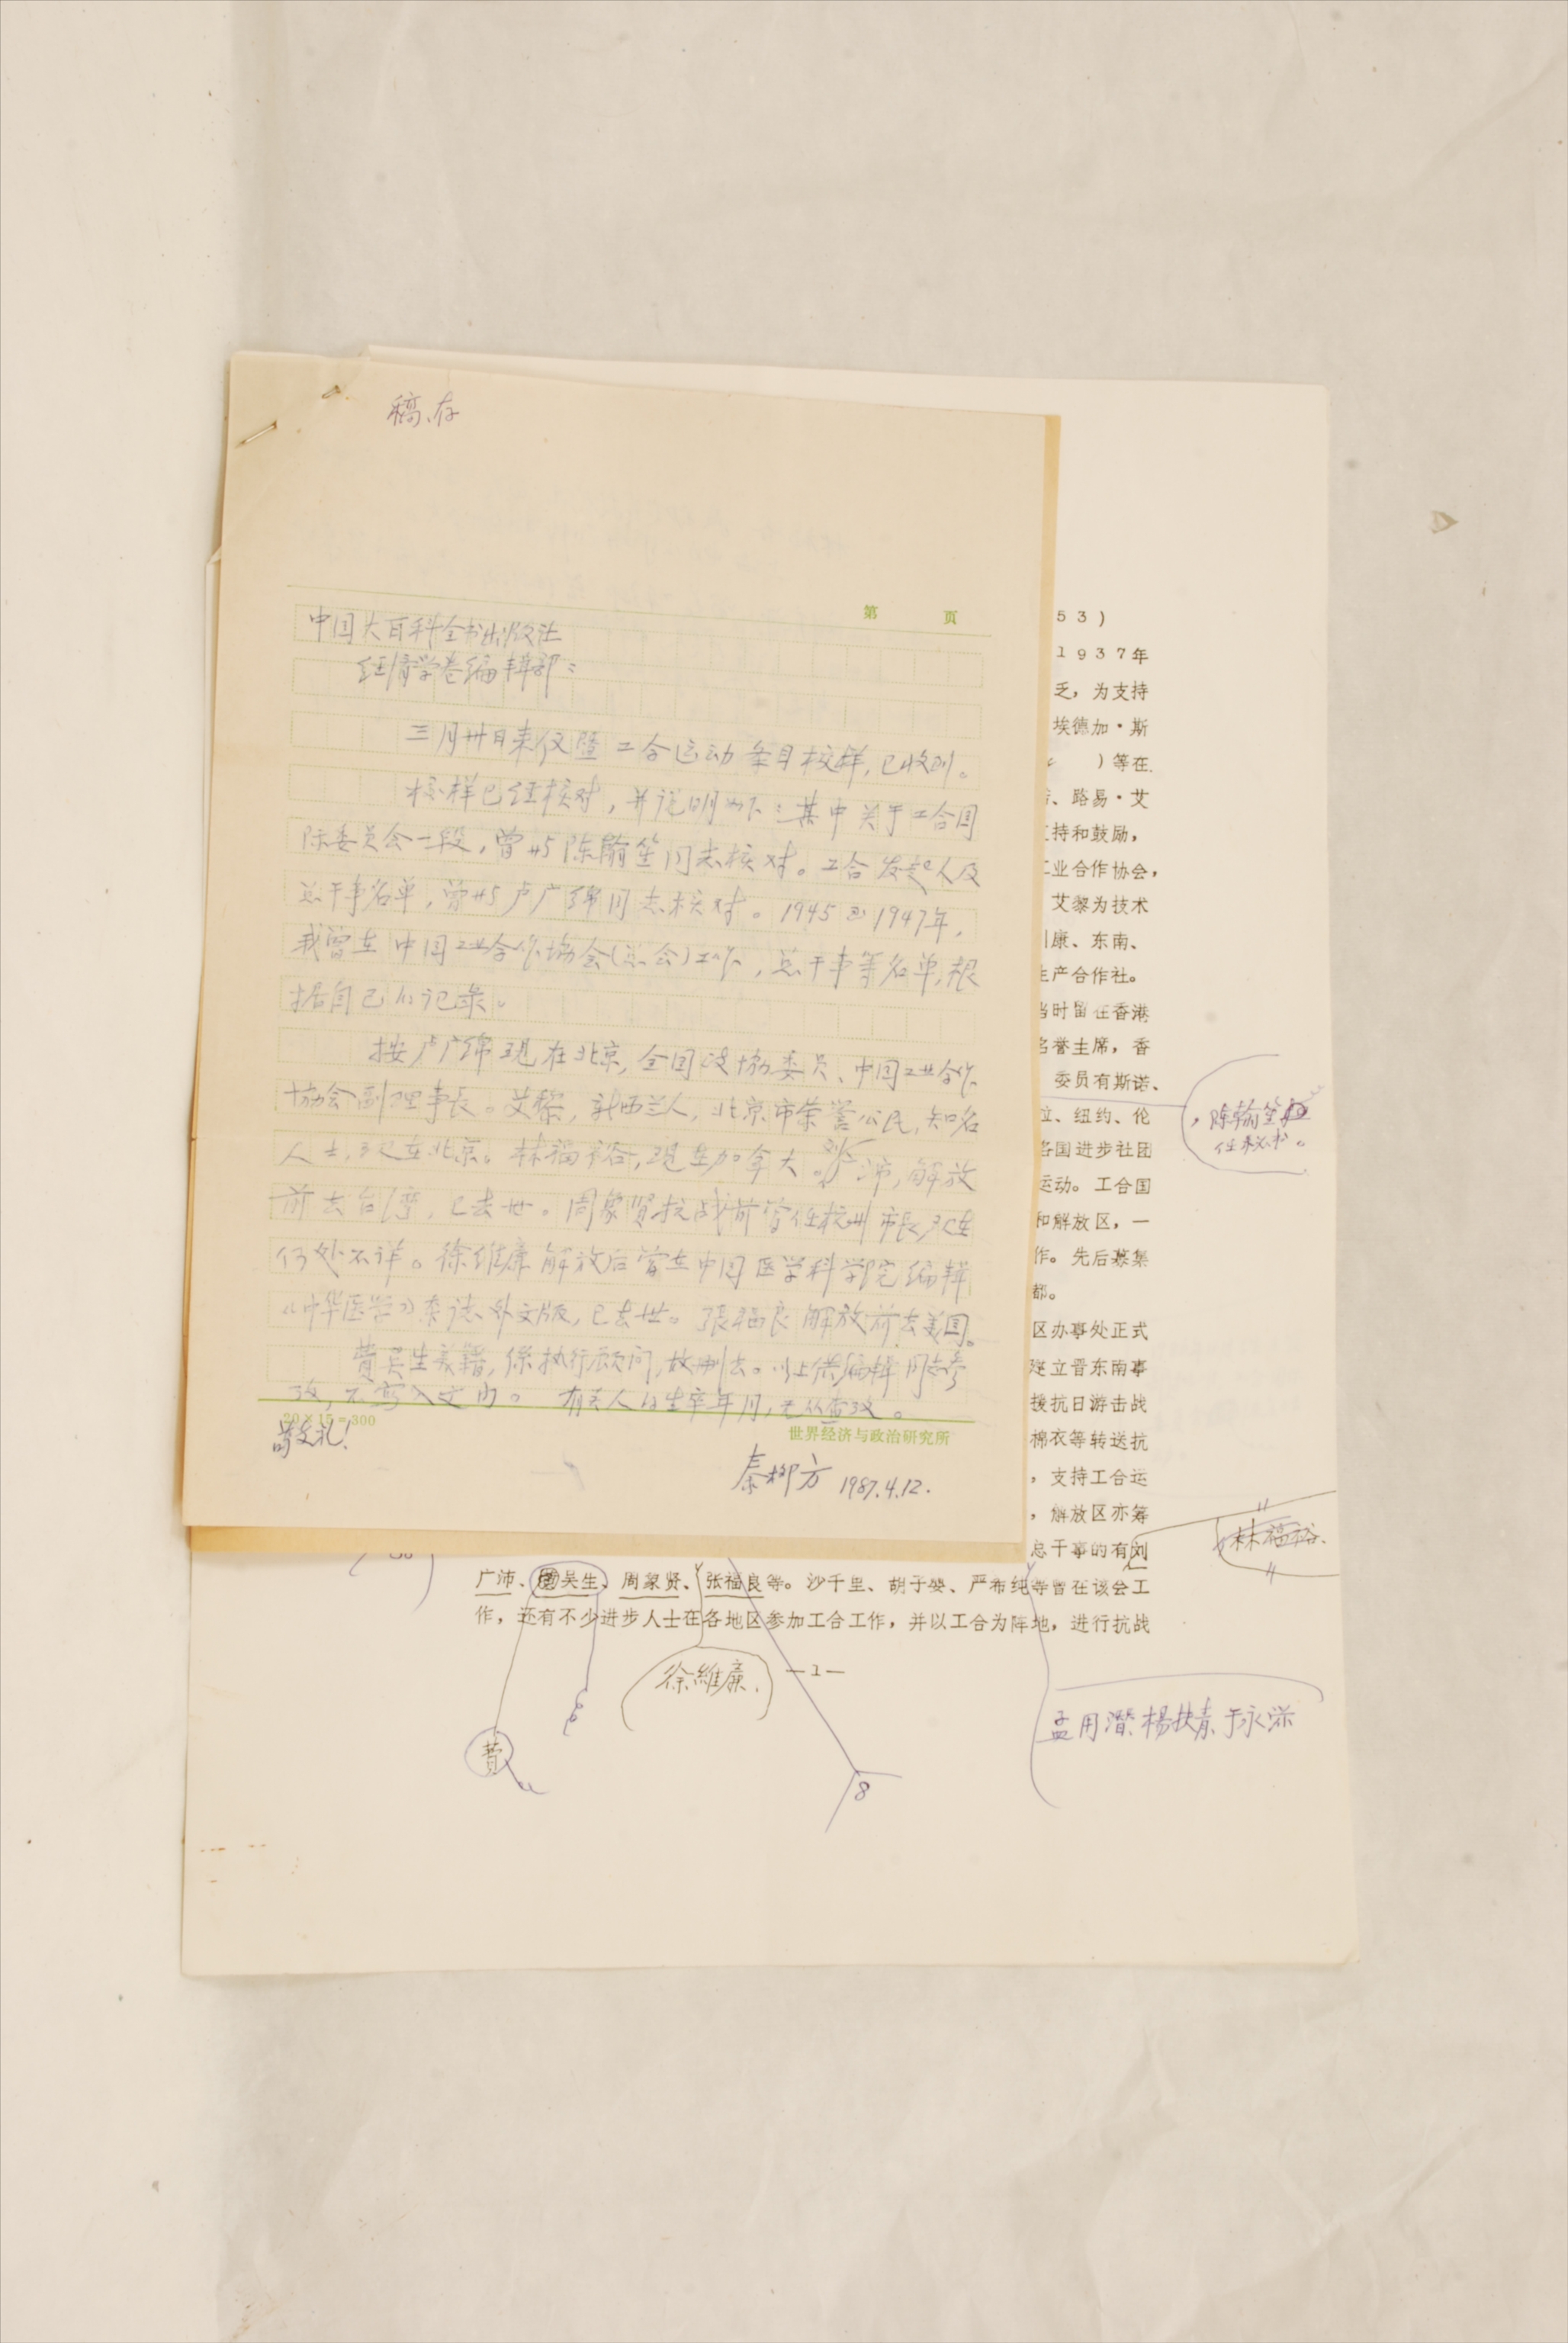 稿存
第 页
中国大百科全书出版社
经济学卷编辑部：
三月卅日来仪暨工合运动条目校样，已收到。
校样已经核对，并说明如下：其中关于工合国
际委员会一段，曾与陈翰笙同志核对。工合发起人及
总干事名单，曾与卢广绵同志核对。1945至1947年，
我曾在中国工业合作协会(总会)工作，总干事等名单，根
据自己的记录。
按卢广绵现在北京，全国政协委员、中国工业合作
协会副理事长。艾黎，新西兰人，北京市荣誉公民，知名
人士，现在北京。林福裕，现在加拿大。刘广沛，解放
前去台湾，已去世。周象贤抗战前曾任杭州市长，现在
何处不详。徐维廉解放后曾在中国医学科学院编辑
《中华医学》杂志外文版，已去世。张福良解放前去美国。
费吴生美籍，系执行顾问，故删去。以上供编辑同志参
考，不写入文内。有关人的生卒年月，无从查考。
20×15=300
世界经济与政治研究所
敬礼！
秦柳方 1987.4.12.
53)
1937年
乏，为支持
埃德加·斯
)等在
、路易·艾
持和鼓励，
业合作协会，
艾黎为技术
康、东南、
生产合作社。
当时留在香港
名誉主席，香
委员有斯诺、
、纽约、伦
，陈翰笙
任秘书。
各国进步社团
运动。工合国
和解放区，一
作。先后募集
都。
区办事处正式
建立晋东南事
援抗日游击战
棉衣等转送抗
，支持工合运
，解放区亦筹
总干事的有刘
林福裕、
广沛、吴生、周象贤、张福良等。沙千里、胡子婴、严希纯等曾在该会工
作，还有不少进步人士在各地区参加工合工作，并以工合为阵地，进行抗战
徐维廉、
—1—
费
孟用潜、杨扶青、于永滋
8